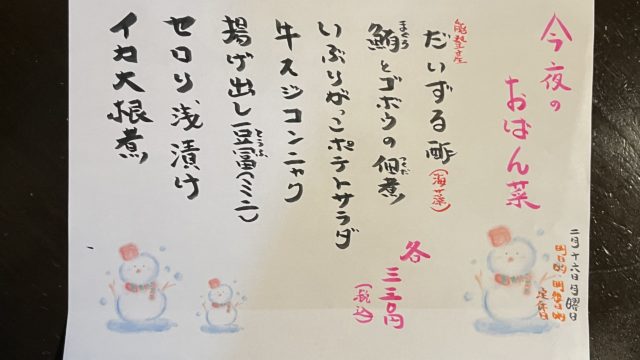 今夜の
おばん菜
能登産
だいずる酢(海藻)
まぐろ
鮪とゴボウの佃煮
つくだ
いぶりがっこポテトサラダ
牛スジコンニャク
揚げ出し豆富(ミニ)
とうふ
セロリ浅漬け
イカ大根煮
各三三〇円
(税込)
二月十六日月曜日
定休日